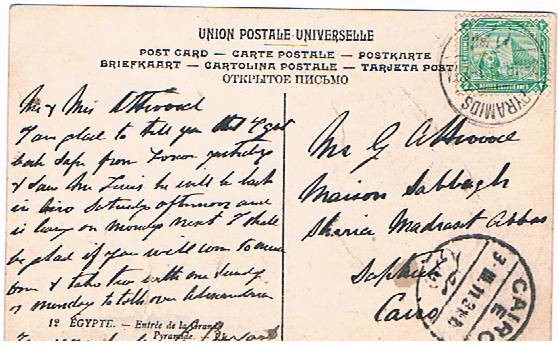 UNION POSTALE UNIVERSELLE
POST CARD – CARTE POSTALE – POSTKARTE
BRIEFKAART – CARTOLINA POSTALE – TARJETA POST
ОТКРЫТОЕ ПИСЬМО
PYRAMIDS
Mr & Mrs Attwood
I am glad to tell you that I got
back safe from Luxor yesterday
& saw Mr he will be back
in Cairo Saturday afternoon and
is leaving on Monday next I shall
be glad if you will come to
& take tea with Sunday
or Monday to Alexandria
12 EGYPTE. – Entrée de la Grande
Pyramide.
Mr G Attwood
Maison Sabbagh
Sharia Madrasit Abbas
Cairo
CAIRO